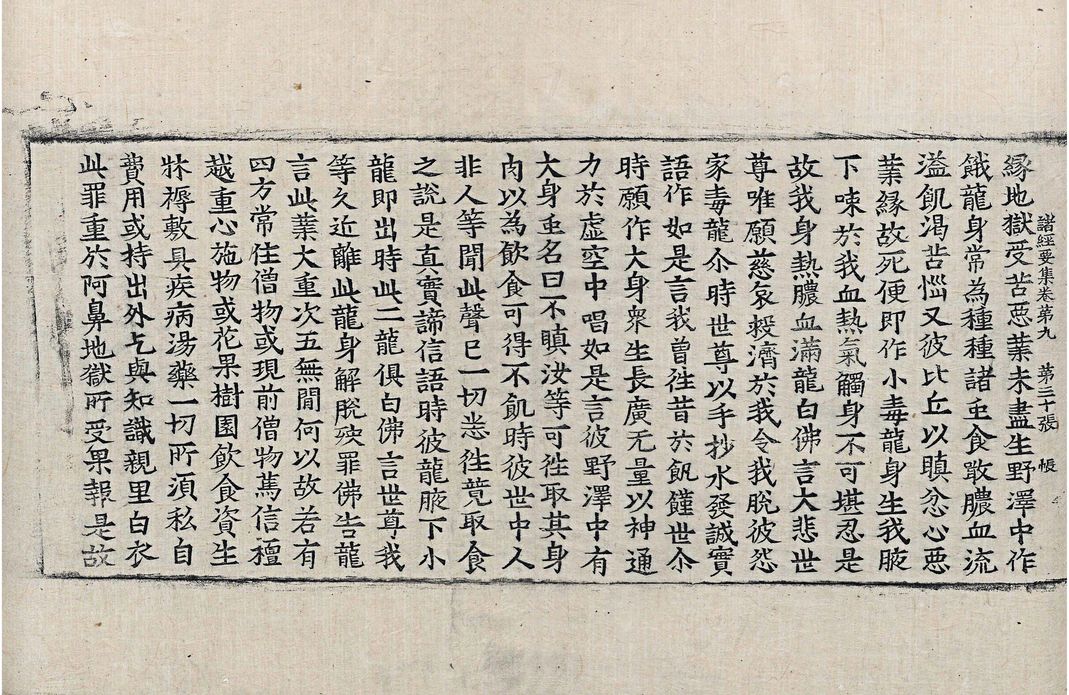 諸經要集卷第九　第三十張　帳
緣地獄受苦惡業未盡生野澤中作
餓龍身常為種種諸䖝食敢膿血流
溢飢渴苦惱又彼比丘以瞋忿心惡
業緣故死便即作小毒龍身生我腋
下唼於我血熱氣觸身不可堪忍是
故我身熱膿血滿龍白佛言大悲世
尊唯願慈哀救濟於我令我脫彼怨
家毒龍尒時世尊以手抄水發誠實
語作如是言我曾徃昔於飢饉世尒
時願作大身衆生長廣无量以神通
力於虛空中唱如是言彼野澤中有
大身䖝名曰不瞋汝等可徃取其身
肉以為飲食可得不飢時彼世中人
非人等聞此聲已一切悉徃競取食
之說是真實諦信語時彼龍腋下小
龍即出時此二龍俱白佛言世尊我
等久近離此龍身解脫殃罪佛告龍
言此業大重次五無間何以故若有
四方常住僧物或現前僧物篤信檀
越重心施物或花果樹園飲食資生
牀褥敷具疾病湯藥一切所湏私自
費用或持出外乞與知識親里白衣
此罪重於阿鼻地獄所受果報是故